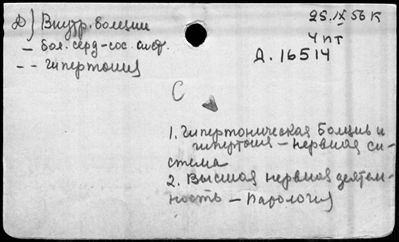 Д) Внутр. болезни
25.IX 56 К
— бол. серд-сос. сист.
4 пт
-- гипертония
Д. 16514
С
1. Гипертоническая болезнь и
гипертония — нервная си-
стема
2. Высшая нервная деятель-
ность — Патология